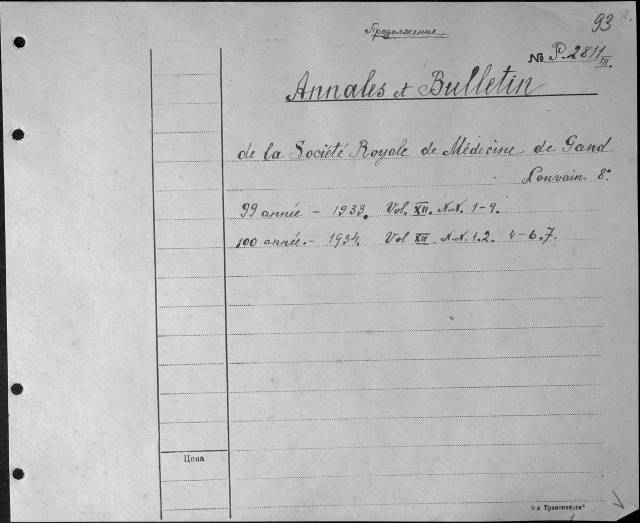 Продолжение
93 2.
№ P.2811 III.
Annales et Bulletin
de la Société Royale de Médecine de Gand
Louvain 8°
99 année – 1933. Vol. XII. N.N. 1–9.
100 année. – 1934. Vol XIII. N.N. 1.2. 4–6.7.
Цена